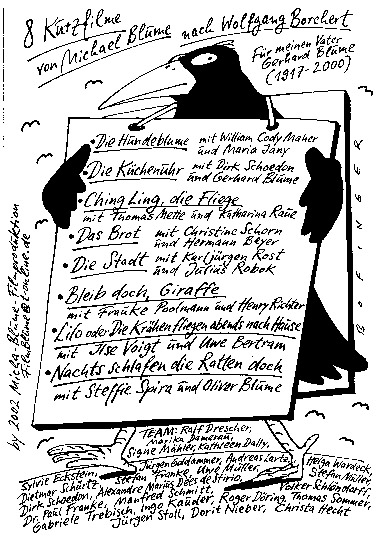 8 Kurzfilme
von Michael Blume nach Wolfgang Borchert
Für meinen Vater
Gerhard Blume
(1917-2000)
• Die Hundeblume mit William Cody Maher
und Maria Jany
• Die Küchenuhr mit Dirk Schoedon
und Gerhard Blume
• Ching Ling, die Fliege
mit Thomas Mette und Katharina Raue
• Das Brot mit Christine Schorn
und Hermann Beyer
• Die Stadt mit Karljürgen Rost
und Julius Robok
• Bleib doch, Giraffe
mit Frauke Poolmann und Henry Richter
• Lilo oder Die Krähen fliegen abends nach Hause
mit Ilse Voigt und Uwe Bertram
• Nachts schlafen die Ratten doch
mit Steffie Spira und Oliver Blume
BOFINGER
by 2002 Micha-Blume-Filmproduktion
FilmBlume@t-online.de
TEAM: Ralf Drescher,
Marika Damerau,
Signe Mähler, Kathleen Dally,
Sylvie Eckstein, Jürgen Goldammer, Andreas Lartz, Helga Wardeck,
Dietmar Schürtz, Stefan Fränkel, Uwe Müller, Stefan Müller,
Dirk Schoedon, Alexandre Marius Dées de Sterio, Volker Schlöndorff,
Dr. Paul Franke, Manfred Schmitt, Roger Döring, Thomas Sommer,
Gabriele Trebisch, Ingo Kauder, Christa Hecht
Jürgen Stoll, Dorit Nieber,